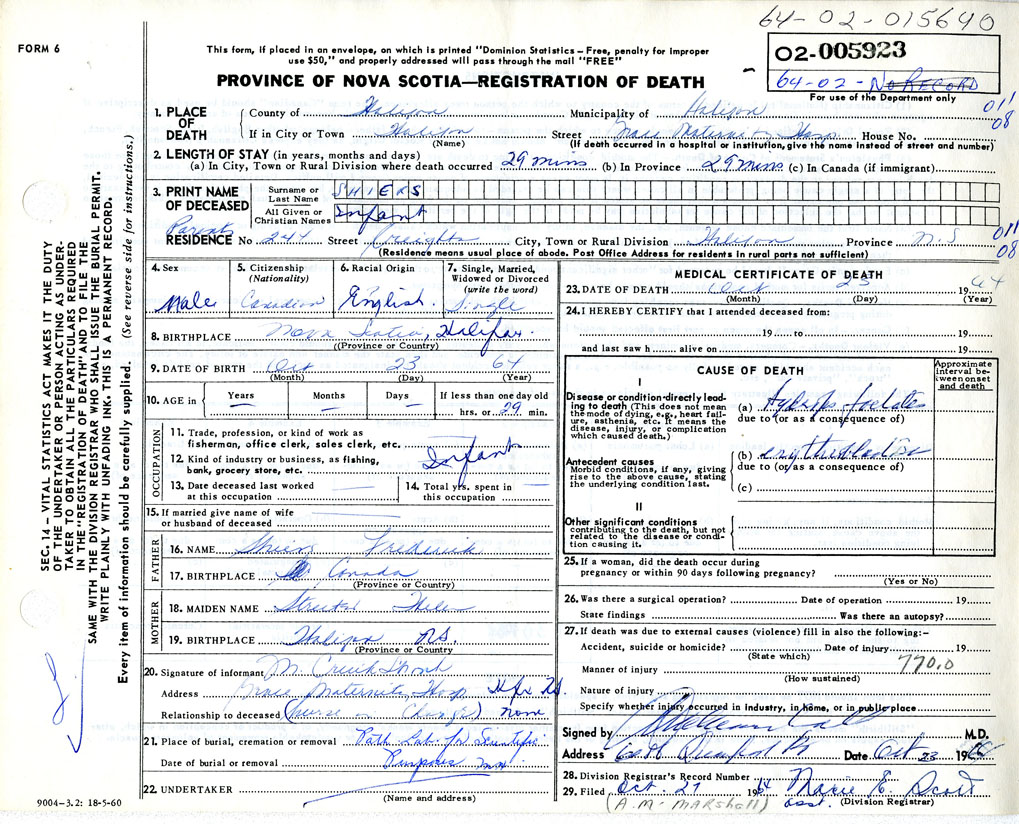 64-02-015690
FORM 6
02-005923
64-02-NO RECORD
For use of the Department only
011
08
This form, if placed in an envelope, on which is printed "Dominion Statistics–Free, penalty for improper
use $50," and properly addressed will pass through the mail "FREE"
PROVINCE OF NOVA SCOTIA—REGISTRATION OF DEATH
1. PLACE OF DEATH County of Halifax Municipality of Halifax
If in City or Town Halifax Street Grace Maternity Hosp. House No.
(Name) (If death occurred in a hospital or institution, give the name instead of street and number)
2. LENGTH OF STAY (in years, months and days)
(a) In City, Town or Rural Division where death occurred 29 mins (b) In Province 29 mins (c) In Canada (if immigrant)
3. PRINT NAME OF DECEASED Surname or Last Name SHIERS
All Given or Christian Names Infant
Parents
RESIDENCE No. 244 Street Creighton City, Town or Rural Division Halifax Province N.S
011
08
(Residence means usual place of abode. Post Office Address for residents in rural parts not sufficient)
4. Sex Male
5. Citizenship (Nationality) Canadian
6. Racial Origin English.
7. Single, Married, Widowed or Divorced (write the word) Single
8. BIRTHPLACE Nova Scotia, Halifax
((Province or Country)
9. DATE OF BIRTH Oct 23 64
(Month) (Day) (Year)
10. AGE in Years Months Days If less than one day old
hrs. or 29 min.
OCCUPATION
11. Trade, profession, or kind of work as
fisherman, office clerk, sales clerk, etc.
12. Kind of industry or business, as fishing,
bank, grocery store, etc. Infant
13. Date deceased last worked
at this occupation
14. Total yrs. spent in
this occupation
15. If married give name of wife
or husband of deceased
FATHER
16. NAME Shiers Frederick
17. BIRTHPLACE Canada
(Province or Country)
MOTHER
18. MAIDEN NAME Helen
19. BIRTHPLACE Halifax N.S.
(Province or Country
20. Signature of informant M. Cruikshank
Address Grace Maternity Hosp Hfx NS.
Relationship to deceased (nurse in Charge) none
21. Place of burial, cremation or removal Path Lab for Scientific
Date of burial or removal Purposes
22. UNDERTAKER
(Name and address)
9004–3.2: 18-5-60
SEC. 14 – VITAL STATISTICS ACT MAKES IT THE DUTY
OF THE UNDERTAKER OR PERSON ACTING AS UNDER-
TAKER TO OBTAIN ALL THE PARTICULARS REQUIRED
IN THE "REGISTRATION OF DEATH" AND TO FILE THE
SAME WITH THE DIVISION REGISTRAR WHO SHALL ISSUE THE BURIAL PERMIT.
WRITE PLAINLY WITH UNFADING INK. THIS IS A PERMANENT RECORD.
Every item of information should be carefully supplied. (See reverse side for instructions.)
MEDICAL CERTIFICATE OF DEATH
23. DATE OF DEATH Oct 23 1964
(Month) (Day) (Year)
24. I HEREBY CERTIFY that I attended deceased from:
19 to 19
and last saw h alive on 19
CAUSE OF DEATH
Approximate interval between onset and death
I
Disease or condition directly leading to death (This does not mean the mode of dying, e.g., heart failure, asthenia, etc. It means the disease, injury, or complication which caused death.)
(a) Hydrops foetalis
due to (or as a consequence of)
Antecedent causes
Morbid conditions, if any, giving rise to the above cause, stating the underlying condition last.
(b) erythroblastosis
due to (or as a consequence of)
(c)
II
Other significant conditions
contributing to the death, but not related to the disease or condition causing it.
25. If a woman, did the death occur during
pregnancy or within 90 days following pregnancy?
(Yes or No)
26. Was there a surgical operation? Date of operation 19
State findings Was there an autopsy?
27. If death was due to external causes (violence) fill in also the following:–
Accident, suicide or homicide? Date of injury 19
(State which)
770.0
Manner of injury
(How sustained)
Nature of injury
Specify whether injury occurred in industry, in home, or in public place
Signed by M.D.
Address Date Oct 23 19
28. Division Registrar's Record Number
29. Filed Oct. 27 1964 Marie E. Scott
(A.M. MARSHALL) asst. (Division Registrar)